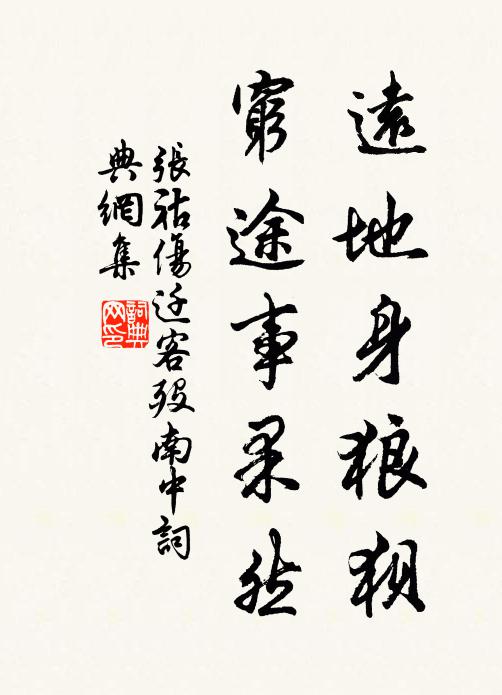 遠地身狼狽
窮途事果然
張祜傷迁客殁南中詞
典網集
詞典網印